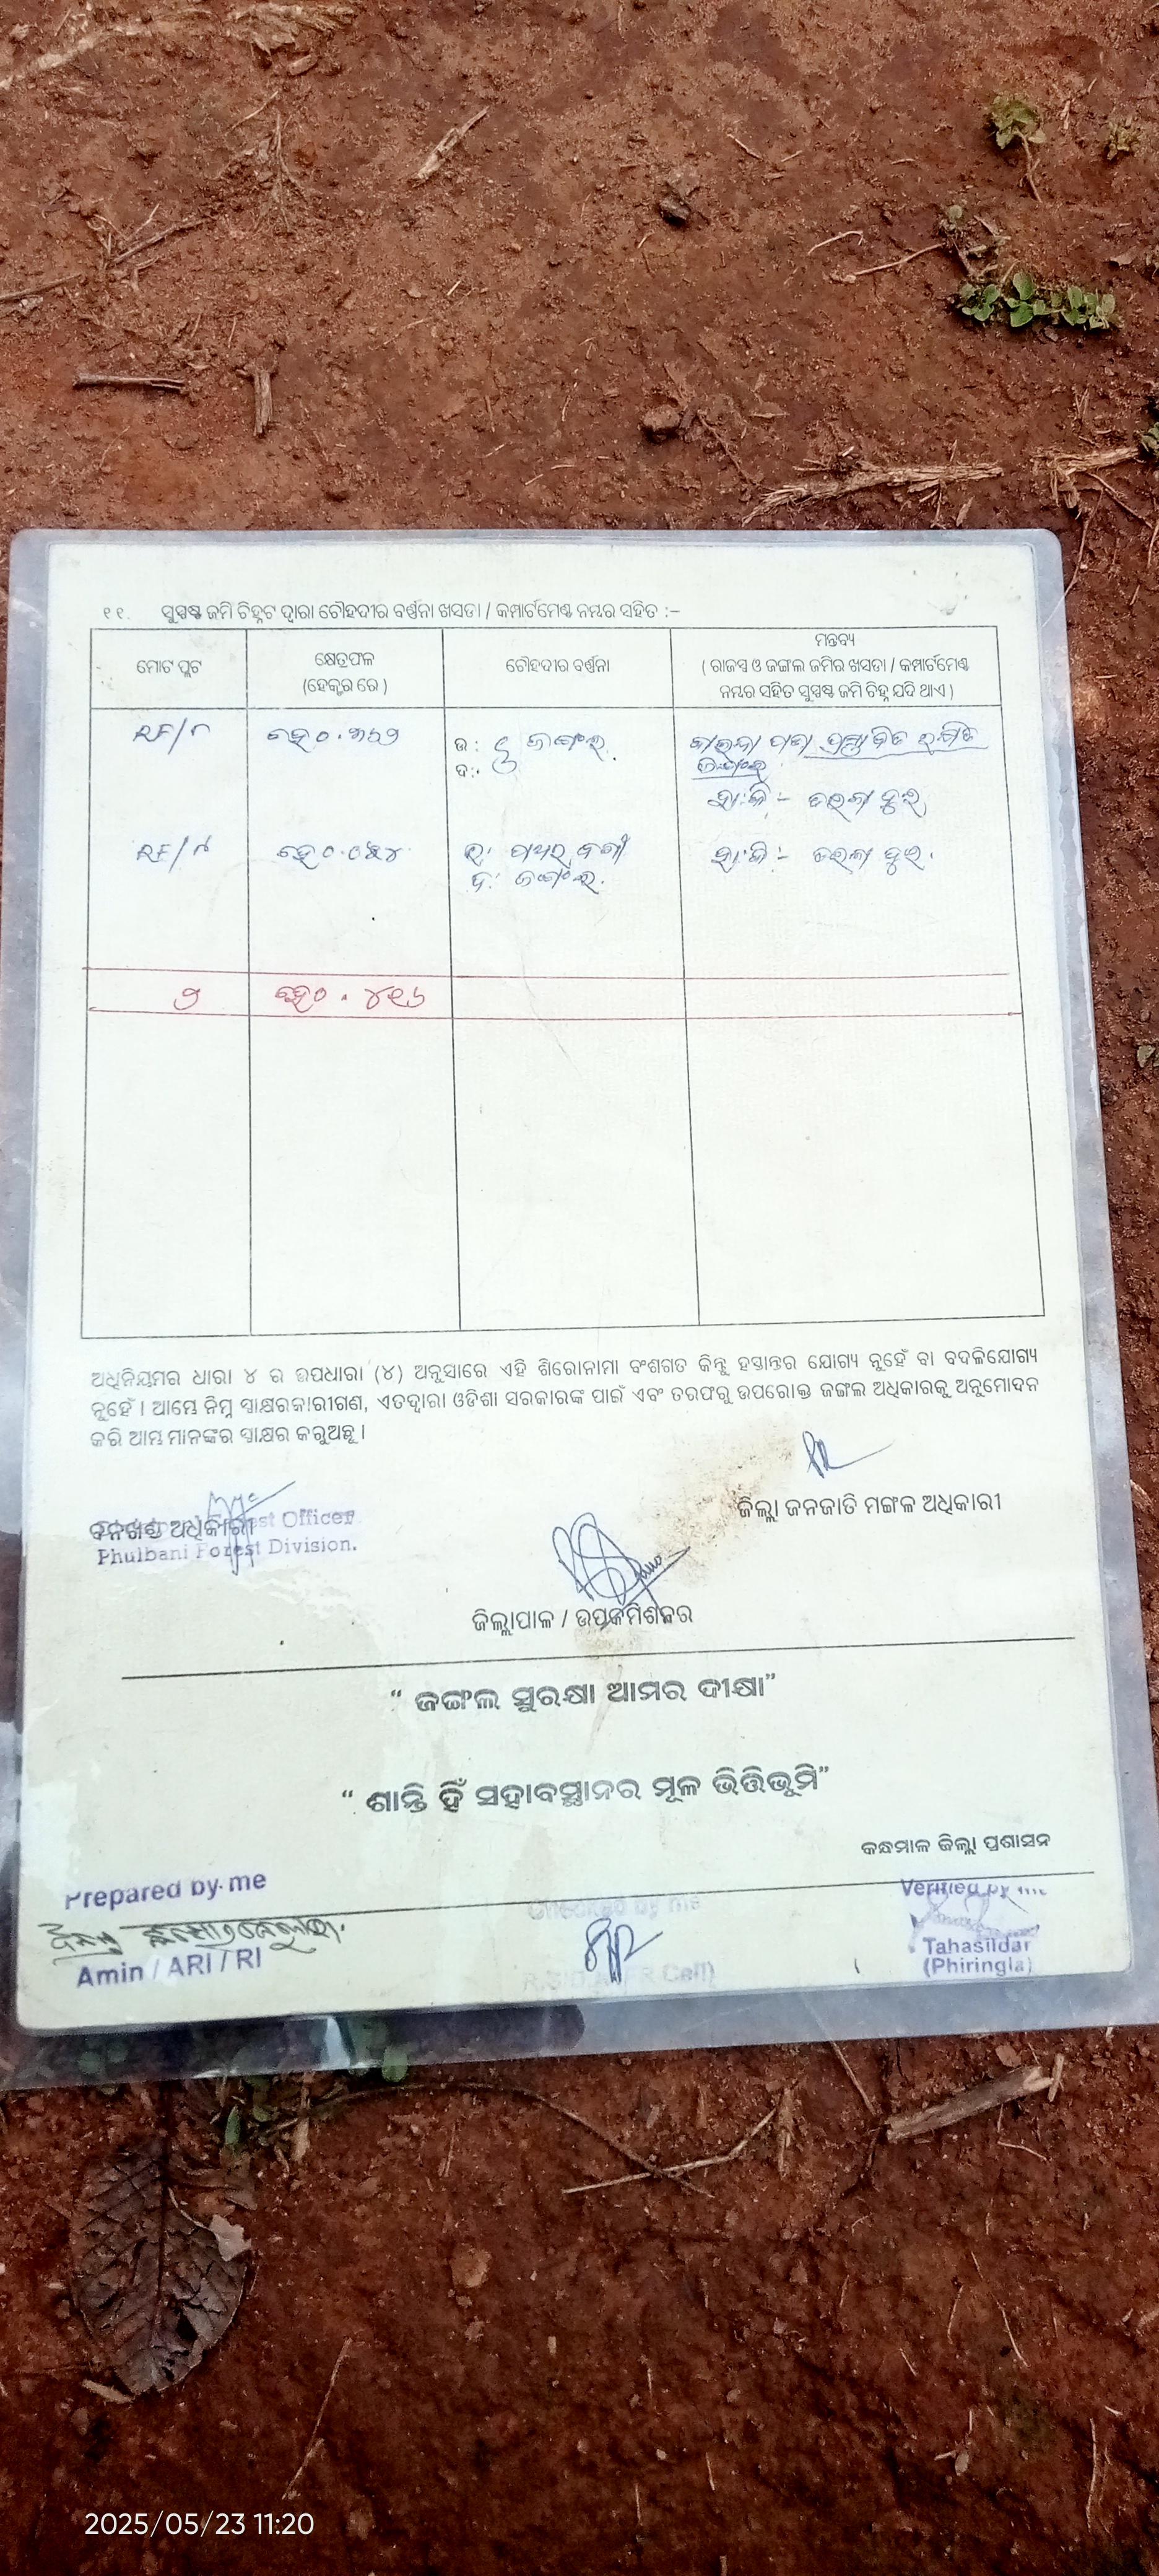 ୧୧. ସୁସ୍ପଷ୍ଟ ଜମି ଚିହ୍ନଟ ଦ୍ୱାରା ଚୌହଦୀର ବର୍ଣ୍ଣନା ଖସଡା / କମ୍ପାର୍ଟମେଣ୍ଟ ନମ୍ବର ସହିତ :–
ମୋଟ ପ୍ଲଟ
କ୍ଷେତ୍ରଫଳ
(ହେକ୍ଟର ରେ )
ଚୌହଦୀର ବର୍ଣ୍ଣନା
ମନ୍ତବ୍ୟ
( ରାଜସ୍ୱ ଓ ଜଙ୍ଗଲ ଜମିର ଖସଡା / କମ୍ପାର୍ଟମେଣ୍ଟ
ନମ୍ବର ସହିତ ସୁସ୍ପଷ୍ଟ ଜମି ଚିହ୍ନ ଯଦି ଥାଏ )
RF/୮ ହେ୦.୩୬୨ ଉ: ଦ: ଜଙ୍ଗଲ
RF/୯ ହେ୦.୦୫୪
ଦ: ଜଙ୍ଗଲ
୨ ହେ୦.୪୧୬
ଅଧିନିୟମର ଧାରା ୪ ର ଉପଧାରା (୪) ଅନୁସାରେ ଏହି ଶିରୋନାମା ବଂଶଗତ କିନ୍ତୁ ହସ୍ତାନ୍ତର ଯୋଗ୍ୟ ନୁହେଁ ବା ବଦଳିଯୋଗ୍ୟ
ନୁହେଁ । ଆମ୍ଭେ ନିମ୍ନ ସ୍ୱାକ୍ଷରକାରୀଗଣ, ଏତଦ୍ୱାରା ଓଡିଶା ସରକାରଙ୍କ ପାଇଁ ଏବଂ ତରଫରୁ ଉପରୋକ୍ତ ଜଙ୍ଗଲ ଅଧିକାରକୁ ଅନୁମୋଦନ
କରି ଆମ୍ଭ ମାନଙ୍କର ସ୍ୱାକ୍ଷର କରୁଅଛୁ ।
ଜିଲ୍ଲା ଜନଜାତି ମଙ୍ଗଳ ଅଧିକାରୀ
ବନଖଣ୍ଡ ଅଧିକାରୀ
Forest Officer
Phulbani Forest Division.
ଜିଲ୍ଲାପାଳ / ଉପକମିଶନର
“ ଜଙ୍ଗଲ ସୁରକ୍ଷା ଆମର ଦୀକ୍ଷା”
“ ଶାନ୍ତି ହିଁ ସହାବସ୍ଥାନର ମୂଳ ଭିତ୍ତିଭୂମି”
କନ୍ଧମାଳ ଜିଲ୍ଲା ପ୍ରଶାସନ
Prepared by me
Checked by me
Verified by me
Amin / ARI / RI
Cell)
Tahasildar
(Phiringia)
2025/05/23 11:20